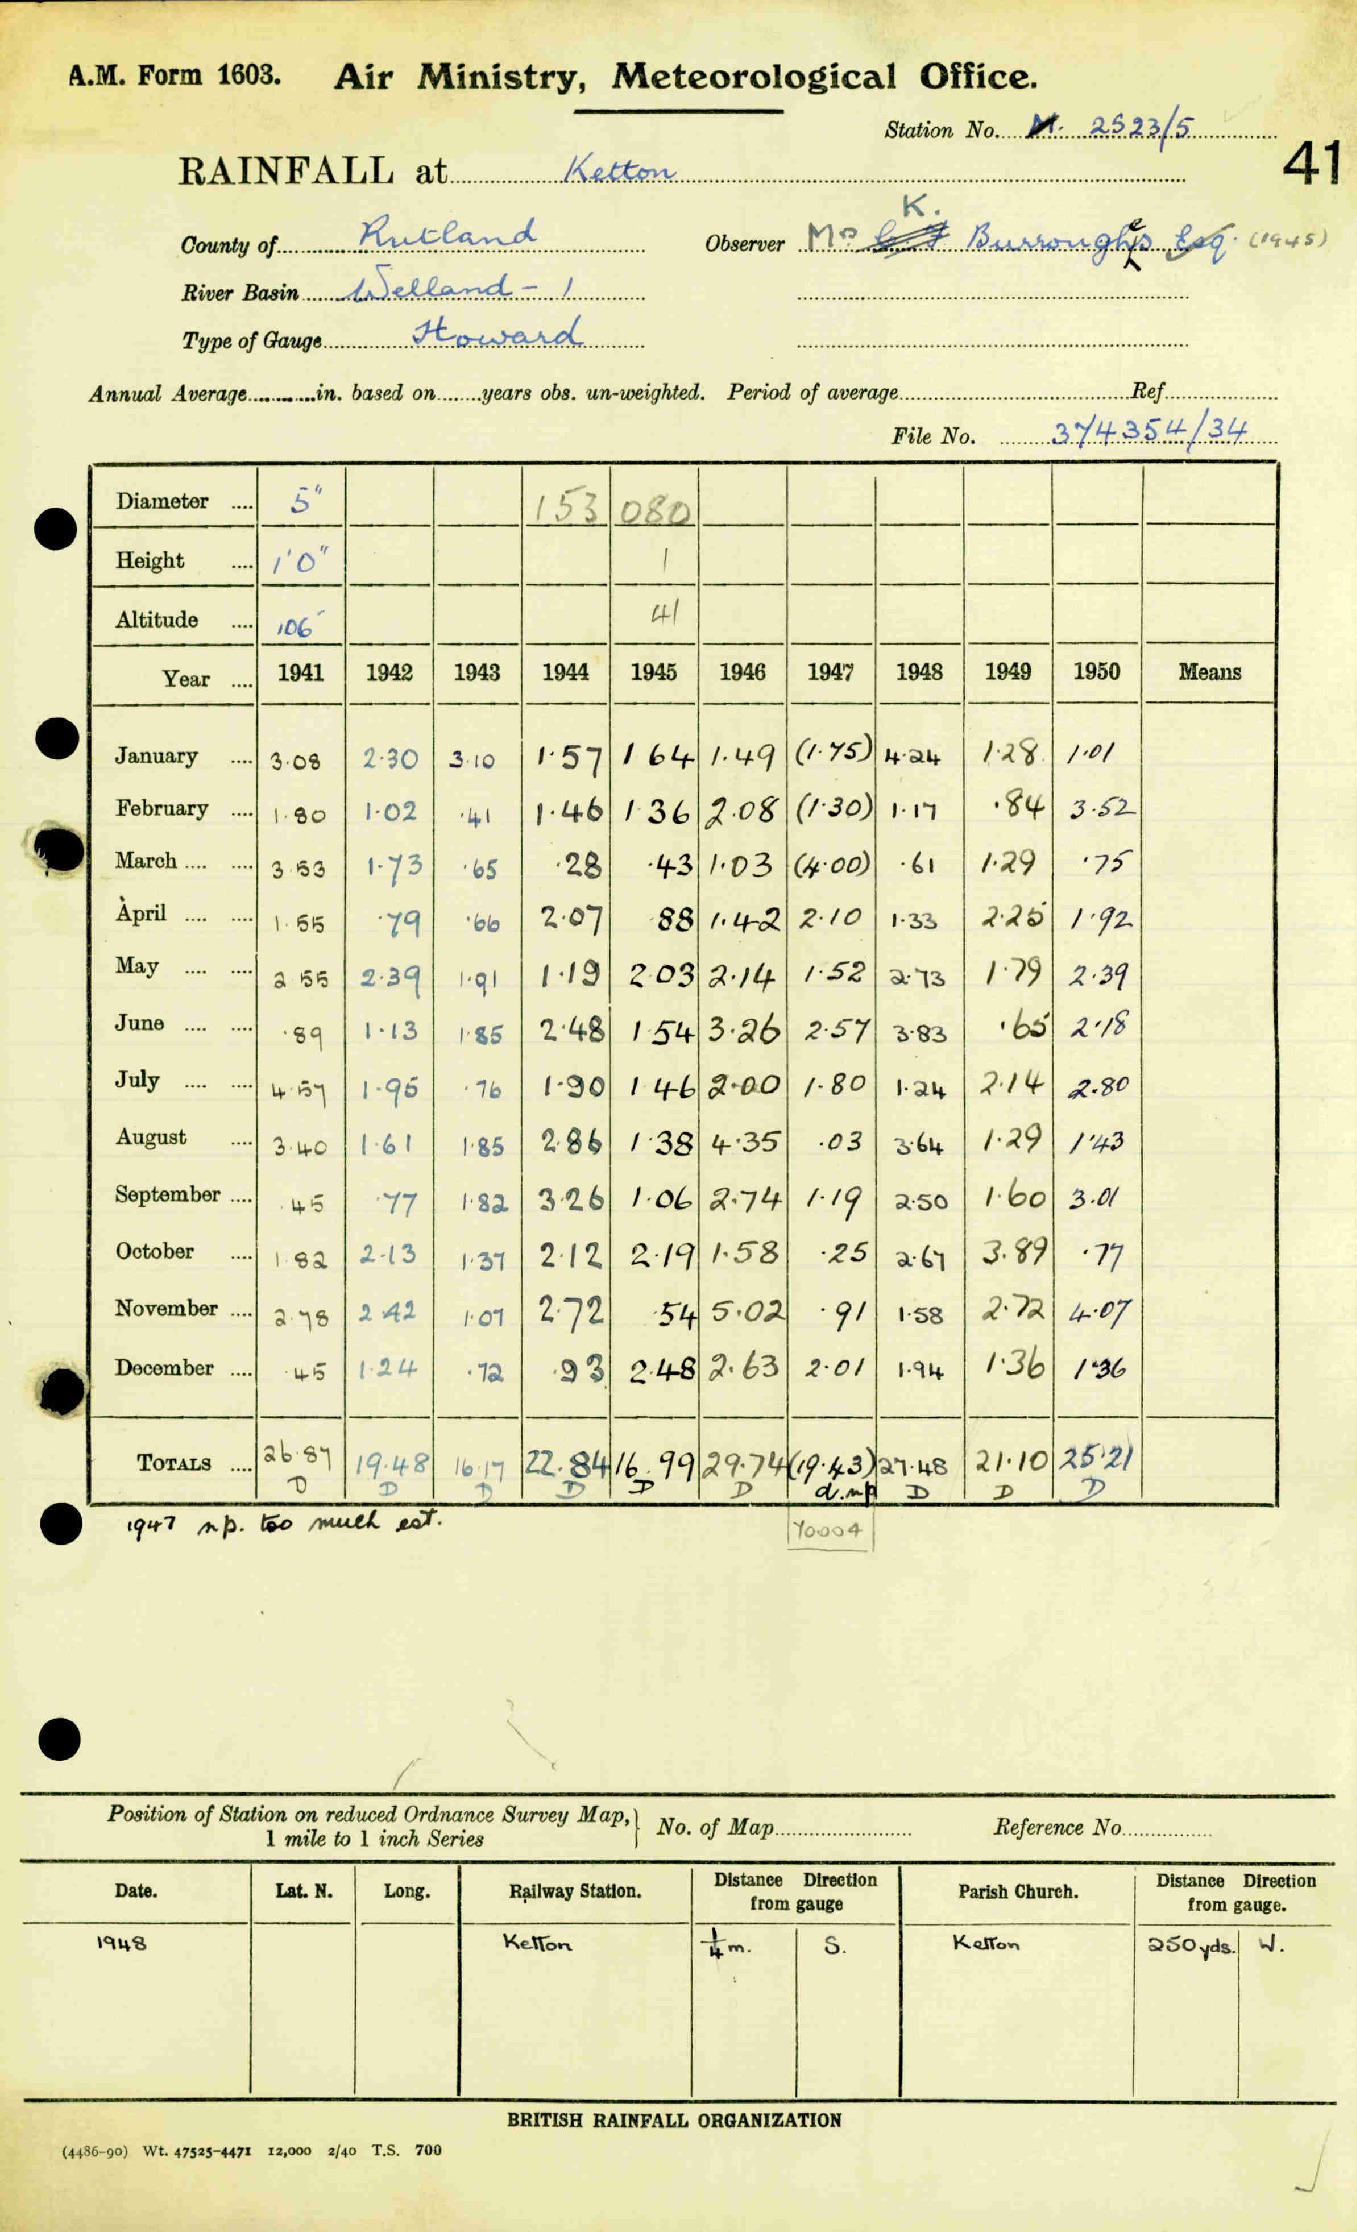 A.M. Form 1603. Air Ministry, Meteorological Office.
Station No. M. 2523/5
41
RAINFALL at Ketton
K.
County of Rutland Observer Mrs Burroughes Esq. (1945)
River Basin Welland - 1
Type of Gauge Howard
Annual Average in. based on years obs. un-weighted. Period of average Ref.
File No. 374354/34
Diameter 5" 153 080
Height 1'0" 1
Altitude 106' 41
Year 1941 1942 1943 1944 1945 1946 1947 1948 1949 1950 Means
January 3.08 2.30 3.10 1.57 1 64 1.49 (1.75) 4.24 1.28 1.01
February 1.80 1.02 .41 1.46 1 36 2.08 (1.30) 1.17 .84 3.52
March 3 53 1.73 .65 .28 .43 1.03 (4.00) .61 1.29 .75
April 1.55 .79 .66 2.07 88 1.42 2.10 1.33 2.25 1.92
May 2 55 2.39 1.91 1.19 2.03 2.14 1.52 2.73 1.79 2.39
June .89 1.13 1.85 2.48 1 54 3.26 2.57 3.83 .65 2.18
July 4.57 1.95 .76 1.90 1 46 2.00 1.80 1.24 2.14 2.80
August 3.40 1.61 1.85 2.86 1.38 4.35 .03 3.64 1.29 1.43
September .45 .77 1.82 3.26 1.06 2.74 1.19 2.50 1.60 3.01
October 1.82 2.13 1.37 2.12 2.19 1.58 .25 2.67 3.89 .77
November 2.78 2.42 1.07 2.72 .54 5.02 .91 1.58 2.72 4.07
December .45 1.24 .72 .93 2.48 2.63 2.01 1.94 1.36 1.36
TOTALS 26.87 19.48 16.17 22.84 16.99 29.74 (19.43) 27.48 21.10 25.21
D D D D D D d.np D D D
1947 np. too much est. 70004
Position of Station on reduced Ordnance Survey Map, No. of Map Reference No.
1 mile to 1 inch Series
Date. Lat. N. Long. Railway Station. Distance Direction from gauge Parish Church. Distance Direction from gauge.
1948 Ketton 1/4 m. S. Ketton 250 yds. W.
BRITISH RAINFALL ORGANIZATION
(4486-90) Wt. 47525-4471 12,000 2/40 T.S. 700